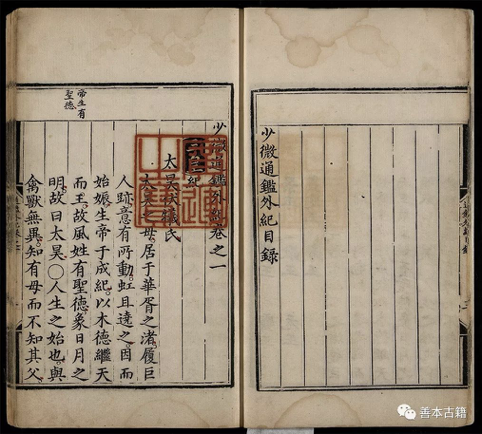 少微通鑑外紀目錄
少微通鑑外紀卷之一
紀
太昊伏犧氏
太昊之母居于華胥之渚履巨
人跡意有所動虹且遶之因而
始娠生帝于成紀以木德繼天
而王故風姓有聖德象日月之
明故曰太昊○人生之始也與
禽獸無異知有母而不知其父
帝生有
聖德
善本古籍